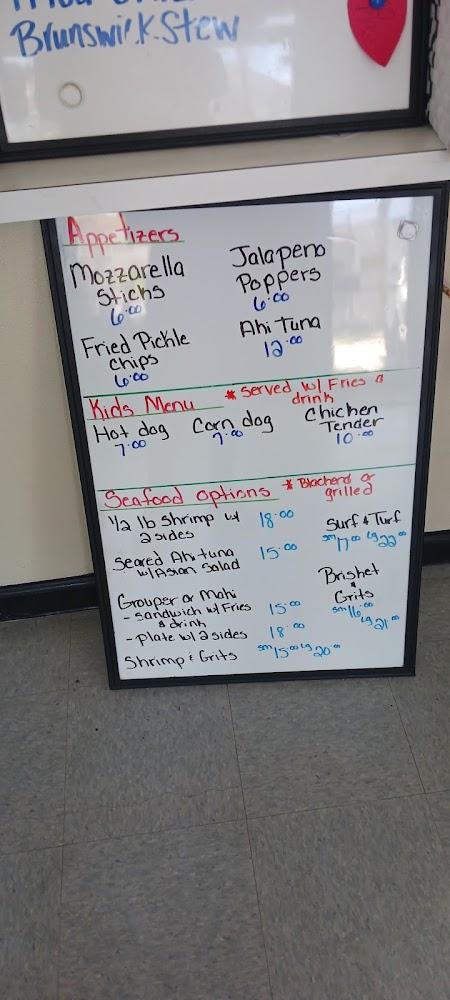 Brunswick Stew
Appetizers
Mozzarella
Sticks
6.00
Jalapeno
Poppers
6.00
Fried Pickle
Chips
6.00
Ahi Tuna
12.00
Kids Menu
* Served w/ Fries &
drink
Hot dog
7.00
Corn dog
7.00
Chicken
Tender
10.00
Seafood Options
* Blackend or
grilled
1/2 lb Shrimp w/ 18.00
2 sides
Seared Ahi tuna 15.00
w/ Asian Salad
Grouper or Mahi
- Sandwich w/ Fries 15.00
& drink
- Plate w/ 2 sides 18.00
Shrimp & Grits sm 15.00 Lg 20.00
Surf & Turf
sm 17.00 Lg 22.00
Brisket
&
Grits
sm 16.00
Lg 21.00